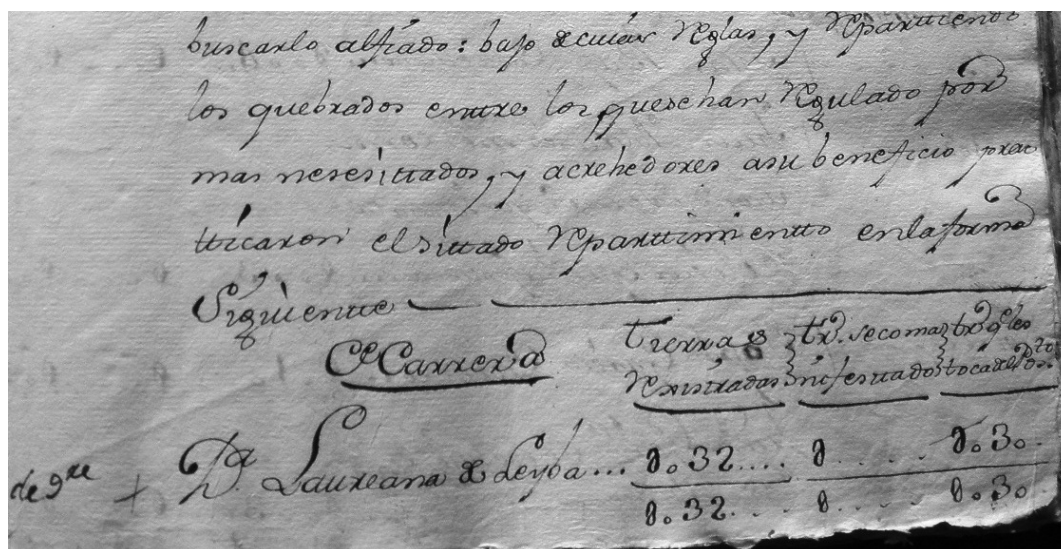 buscarlo alfiado: bajo de cuias Reglas, y Repartiendo
los quebrados entre los que se han Regulado por
mas nesesittados, y acrehedores a su beneficio prac
tticaron el sittado Reparttimientto en la forma
Siguiente
Ce Carrera
Tierras
Rexistradas
trs. se coma
nifestado
trs. q. les
toca del Pto.
de 9re + Da. Laureana de Leyba... 0.32.... 0..... 0.30.
0.32... 0.... 0.30